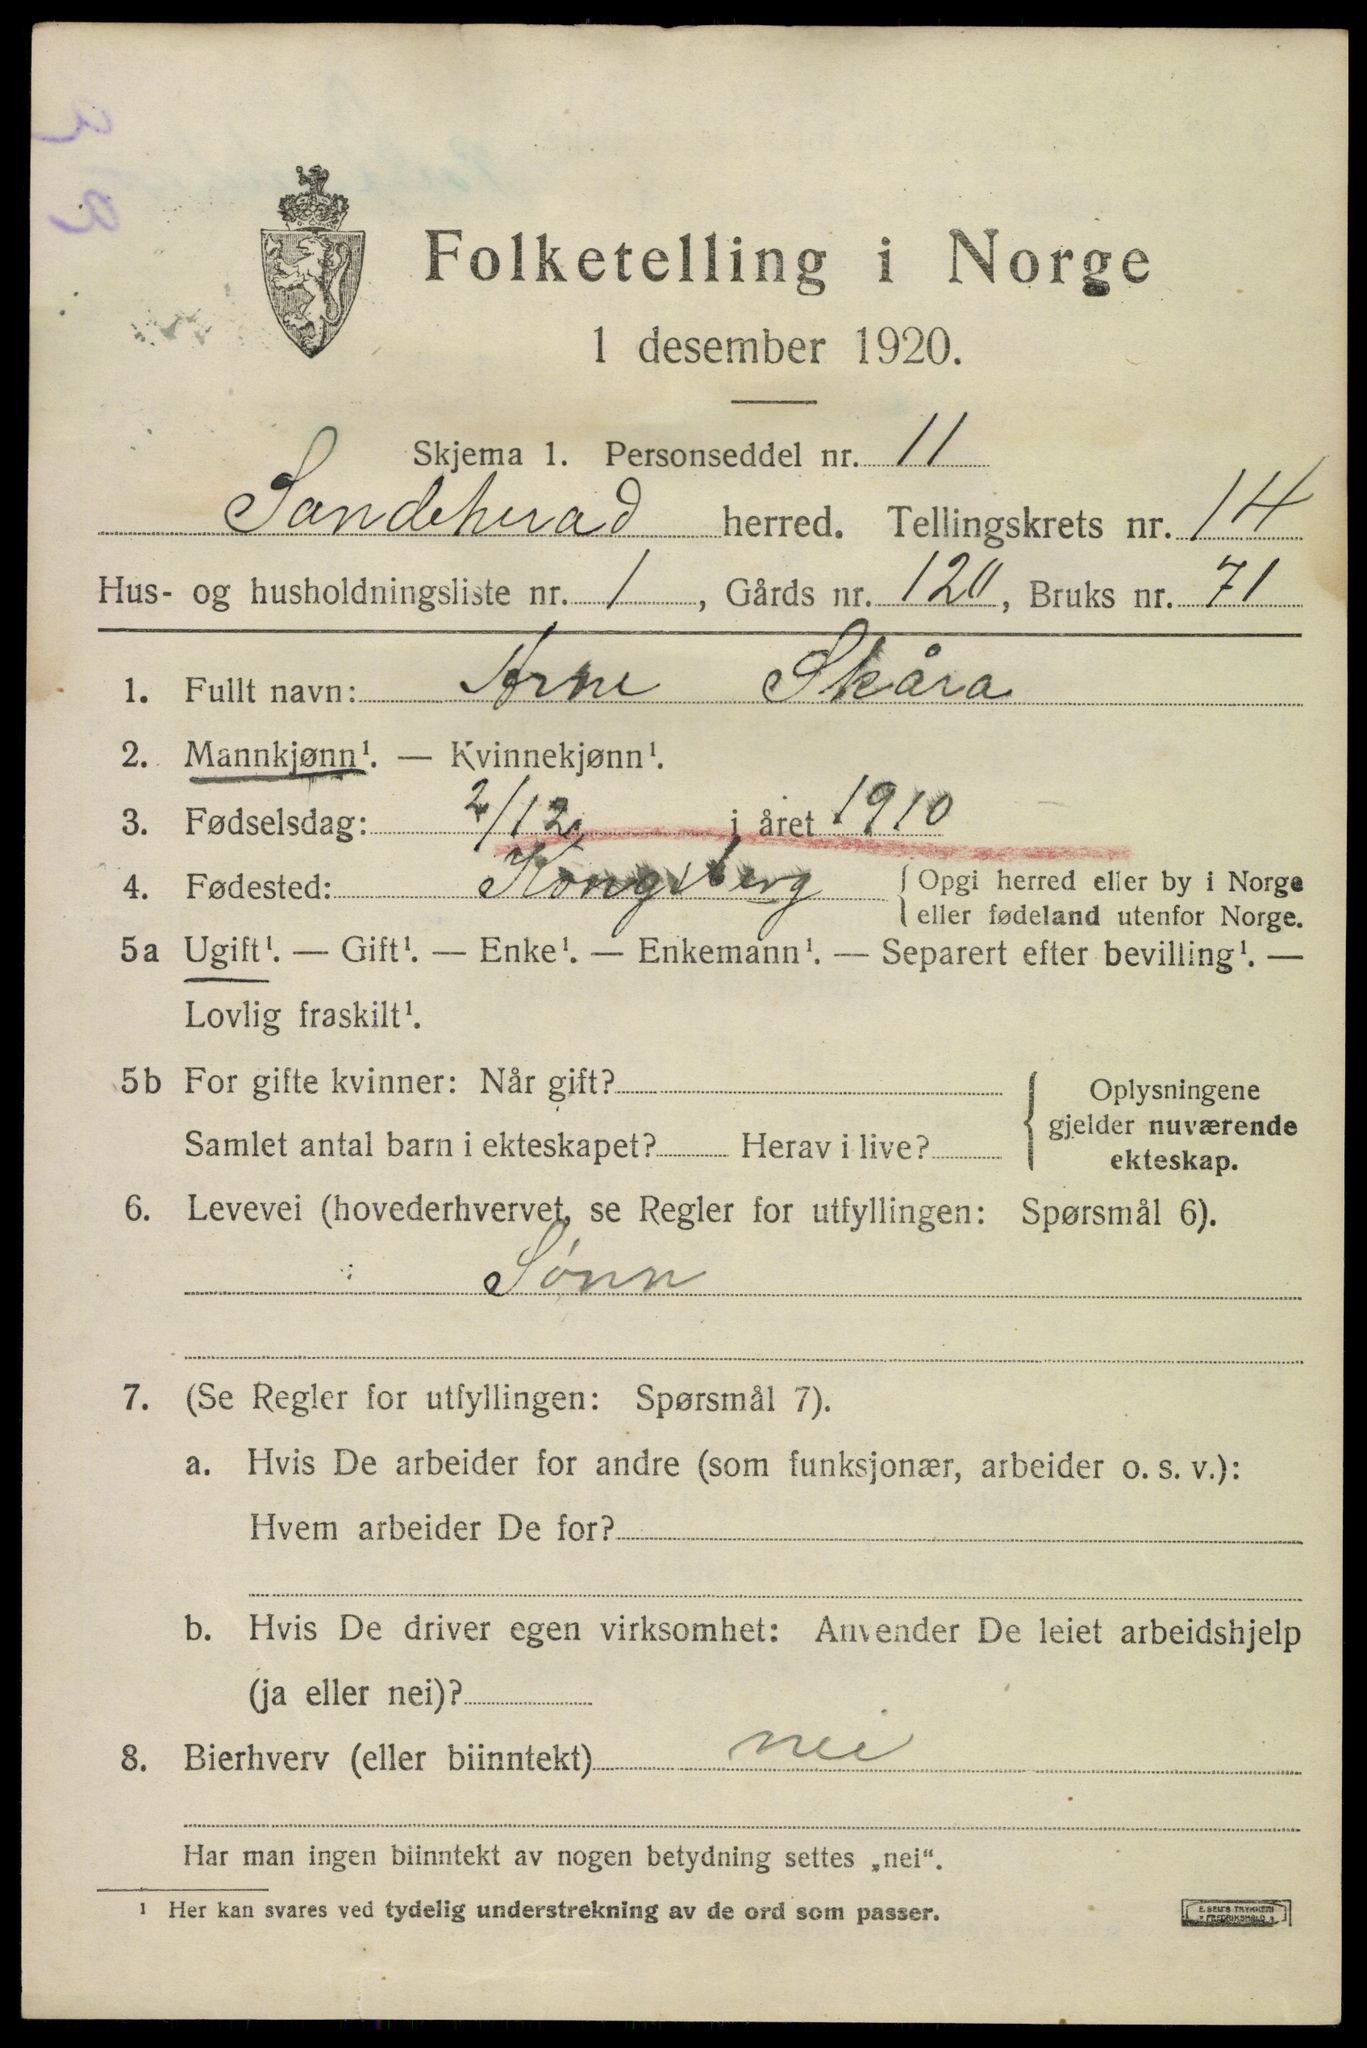 Folketelling i Norge
1 desember 1920.
Skjema 1. Personseddel nr. 11
Sandeherad herred. Tellingskrets nr. 14
Hus- og husholdningsliste nr. 1, Gårds nr. 120, Bruks nr. 71
1. Fullt navn: Arne Skåra
2. Mannkjønn¹. — Kvinnekjønn¹.
3. Fødselsdag: 2/12 i året 1910
4. Fødested: Kongsberg { Opgi herred eller by i Norge
eller fødeland utenfor Norge.
5a Ugift¹. — Gift¹. — Enke¹. — Enkemann¹. — Separert efter bevilling¹. —
Lovlig fraskilt¹.
5b For gifte kvinner: Når gift?
Samlet antal barn i ekteskapet? Herav i live?
Oplysningene
gjelder nuværende
ekteskap.
6. Levevei (hovederhvervet, se Regler for utfyllingen: Spørsmål 6).
Sønn
7. (Se Regler for utfyllingen: Spørsmål 7).
a. Hvis De arbeider for andre (som funksjonær, arbeider o. s. v.):
Hvem arbeider De for?
b. Hvis De driver egen virksomhet: Anvender De leiet arbeidshjelp
(ja eller nei)?
8. Bierhverv (eller biinntekt) nei
Har man ingen biinntekt av nogen betydning settes „nei“.
¹ Her kan svares ved tydelig understrekning av de ord som passer.
E. SEM'S TRYKKERI
FREDRIKSHALD